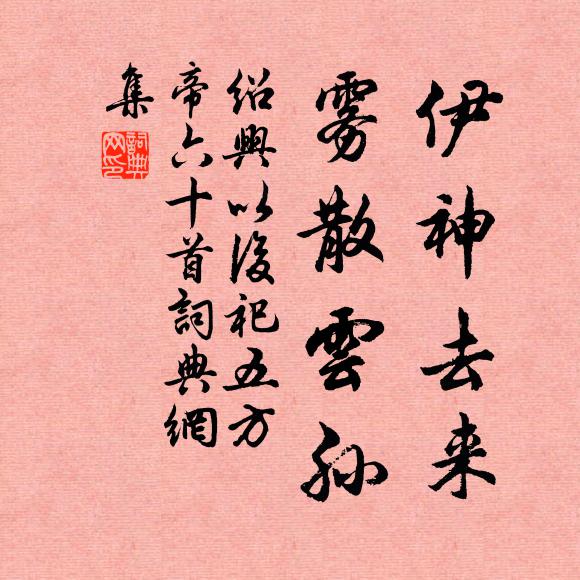 伊神去来
雾散雲孙
紹興以後祀五方
帝六十首詞典網
集
詞典
网印